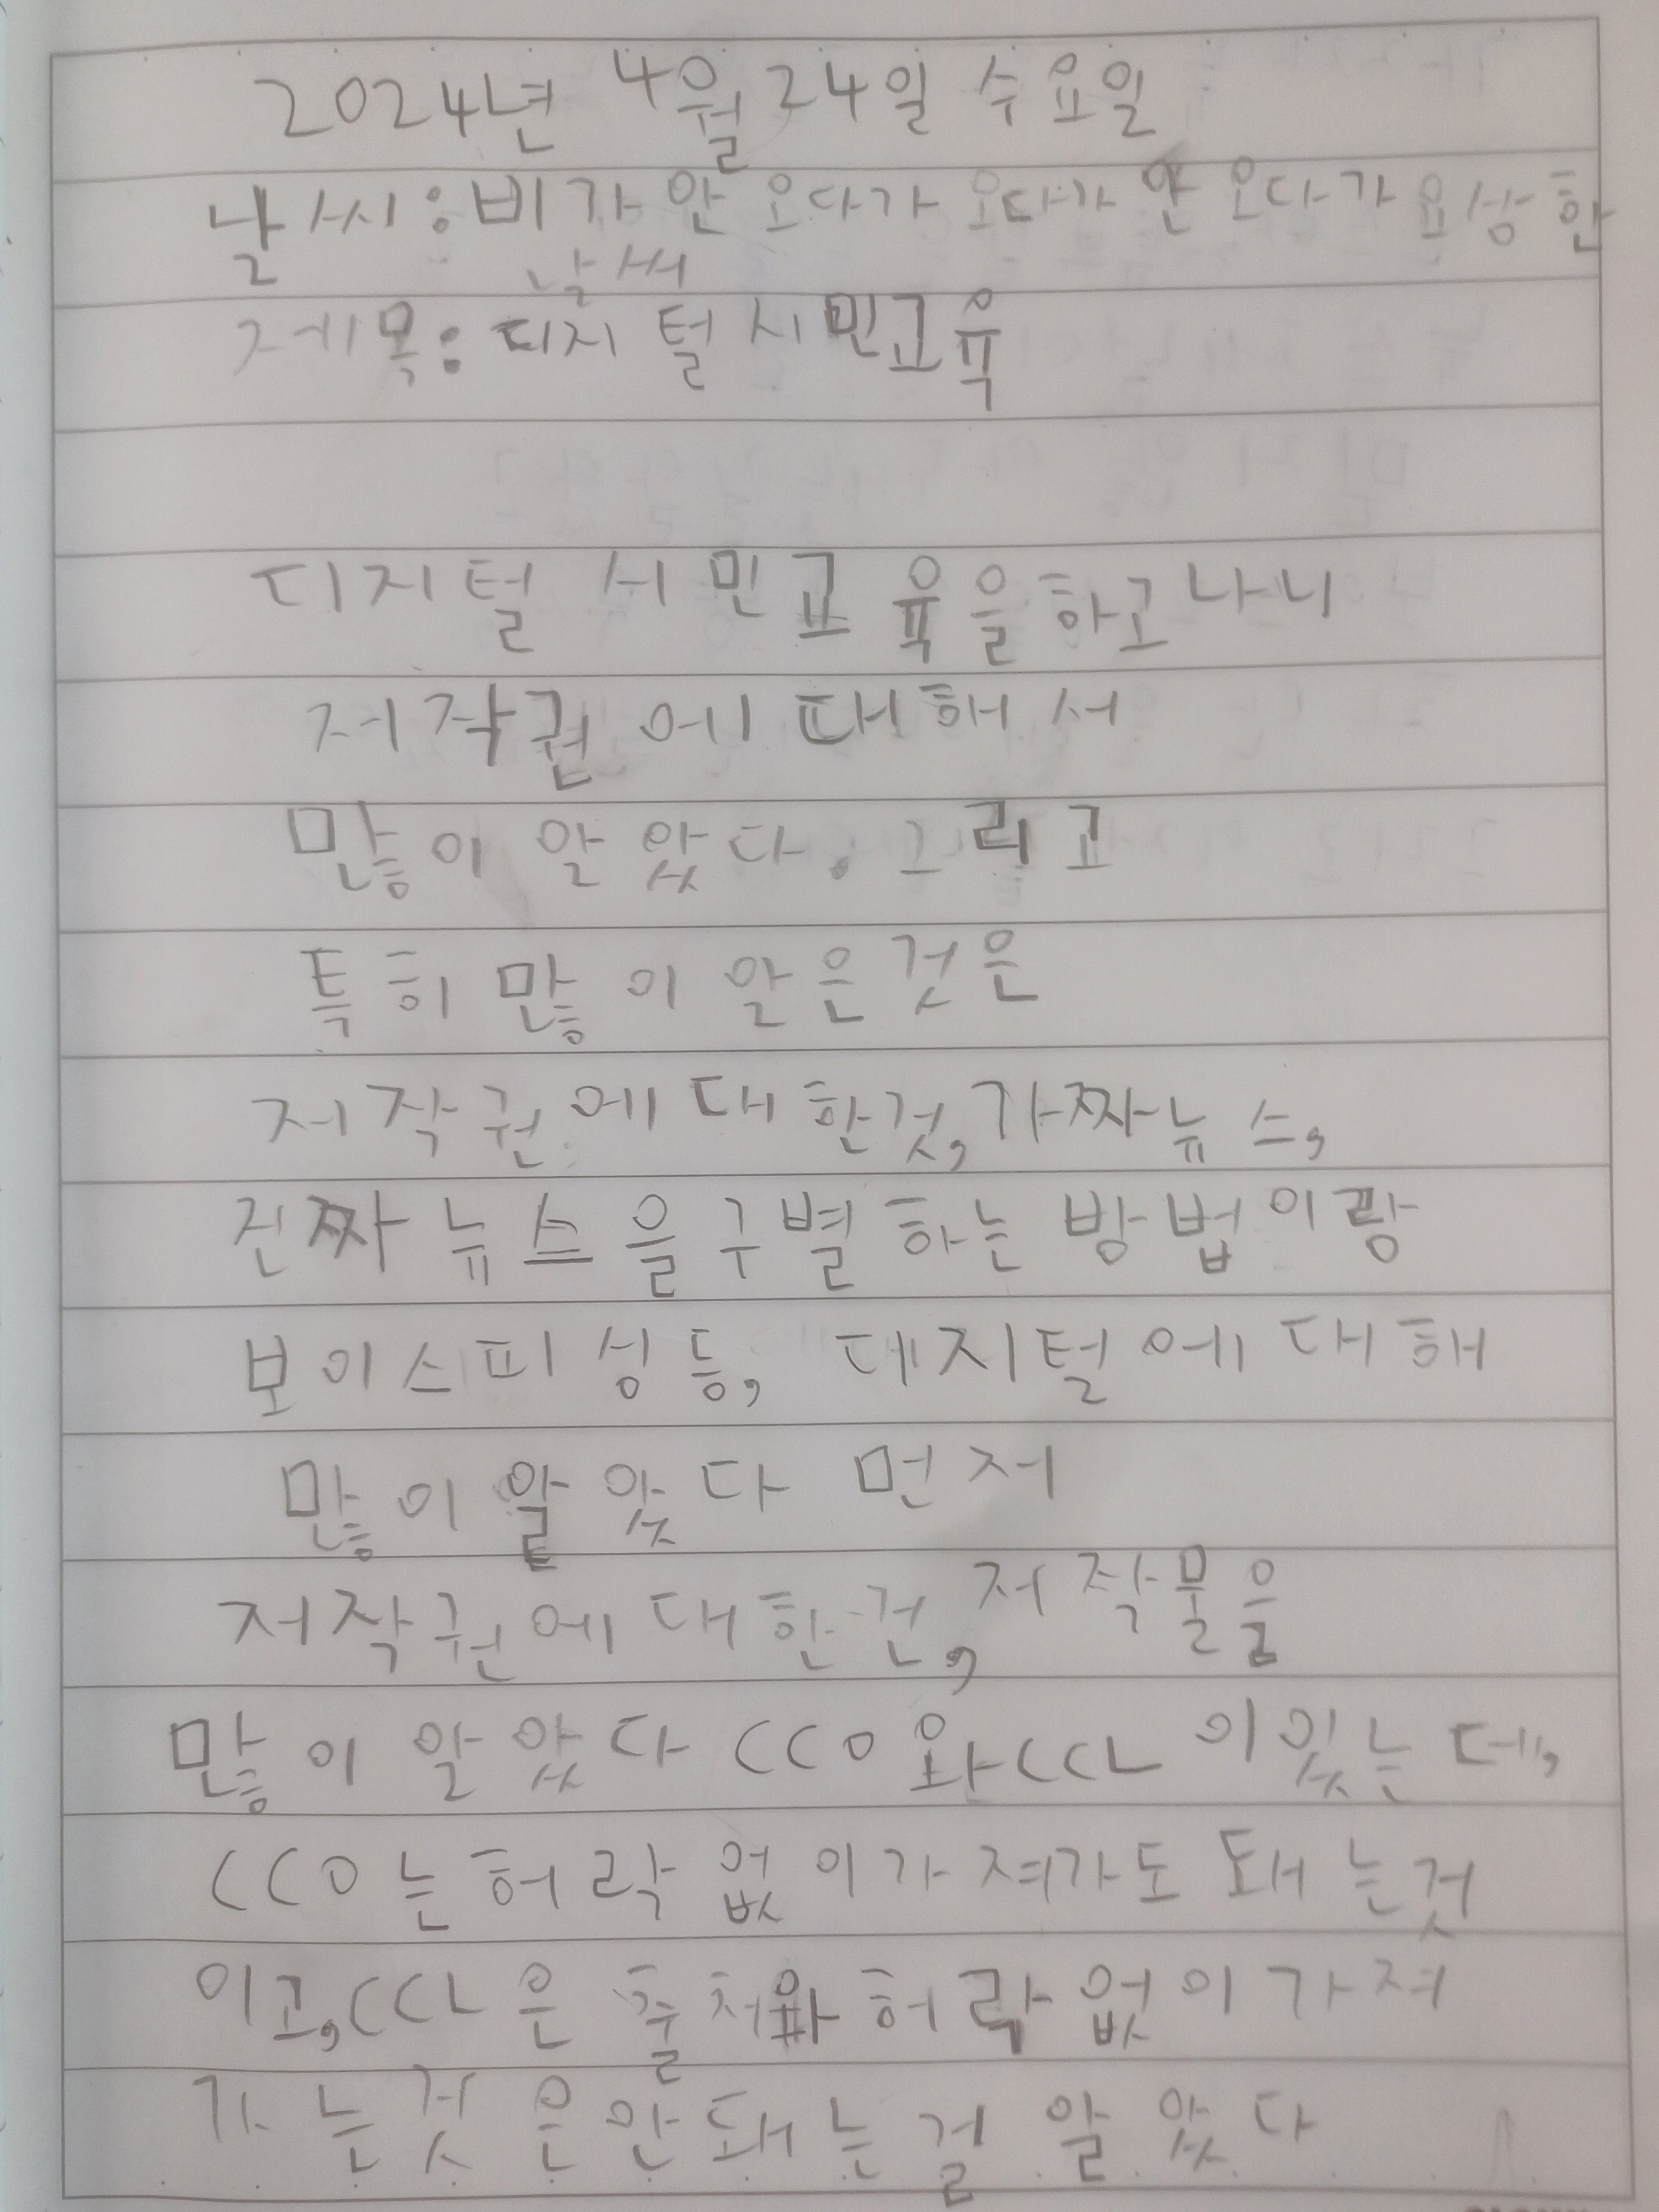 2024년 4월 24일 수요일
날씨: 비가 안 오다가 오다가 안 오다가 요상한
날씨
제목: 디지털 시민교육
디지털 시민교육을하고나니
저작권에 대해서
많이 알았다. 그리고
특히 많이 알은것은
저작권에 대한것, 가짜뉴스,
진짜 뉴스을 구별하는 방법이랑
보이스피싱등, 데지털에 대해
많이 알았다 먼저
저작권에 대한건, 저작물을
많이 알았다 CCO와 CCL이있는데,
CCO는 허락 없이가져가도 돼는것
이고, CCL은 출처와 허락 없이 가져
가는것은안돼는걸 알았다